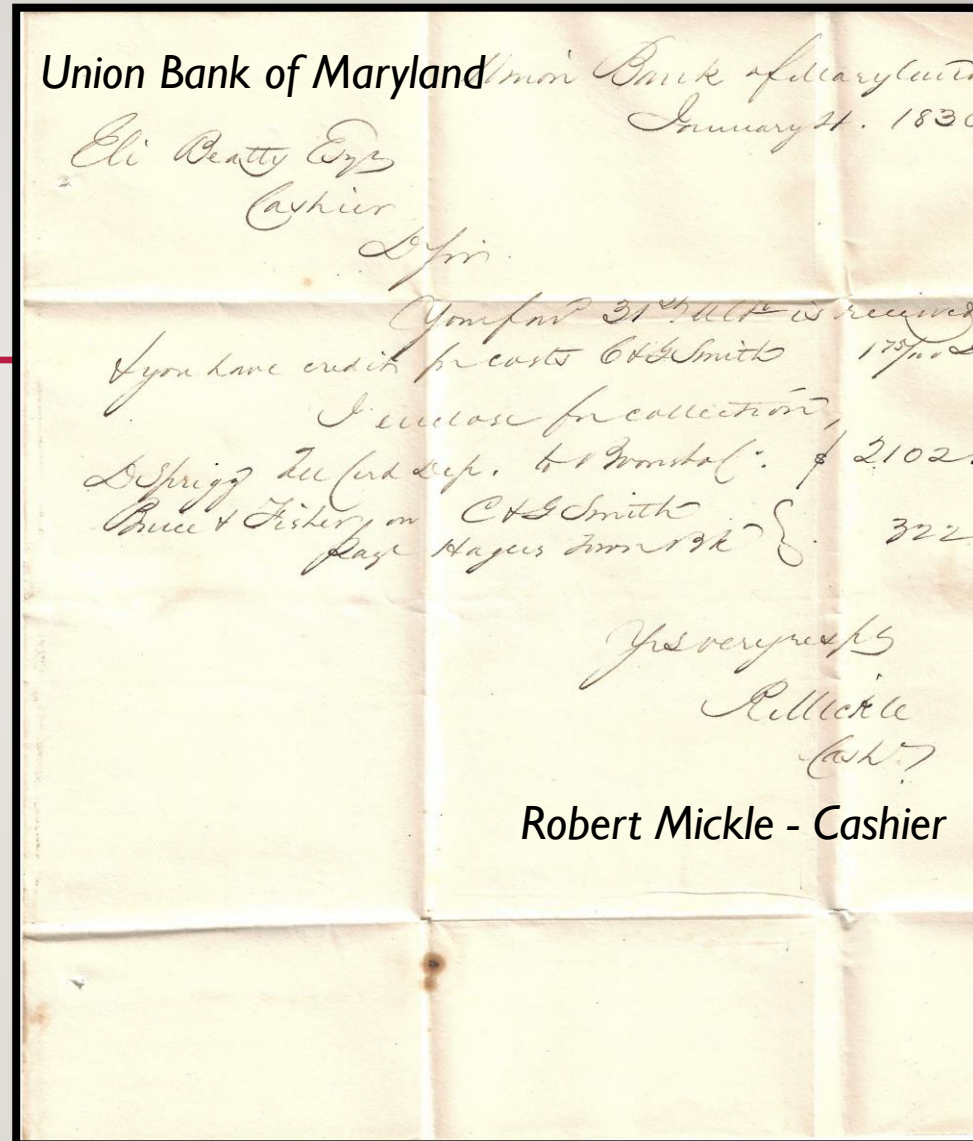 Union Bank of Maryland
Union Bank of Maryland
January 4. 183
Eli Beatty Esqr
Cashier
D Sir
Your favr 31st Ulto is received
& you have credit for costs C & G Smith 1 75/100
I enclose for collection,
D Sprigg Dep. $ 2102
Bruce & Fisher on C & G Smith
Hagers Town Bk } 322
Yrs very respy
R Mickle
Cashr
Robert Mickle - Cashier